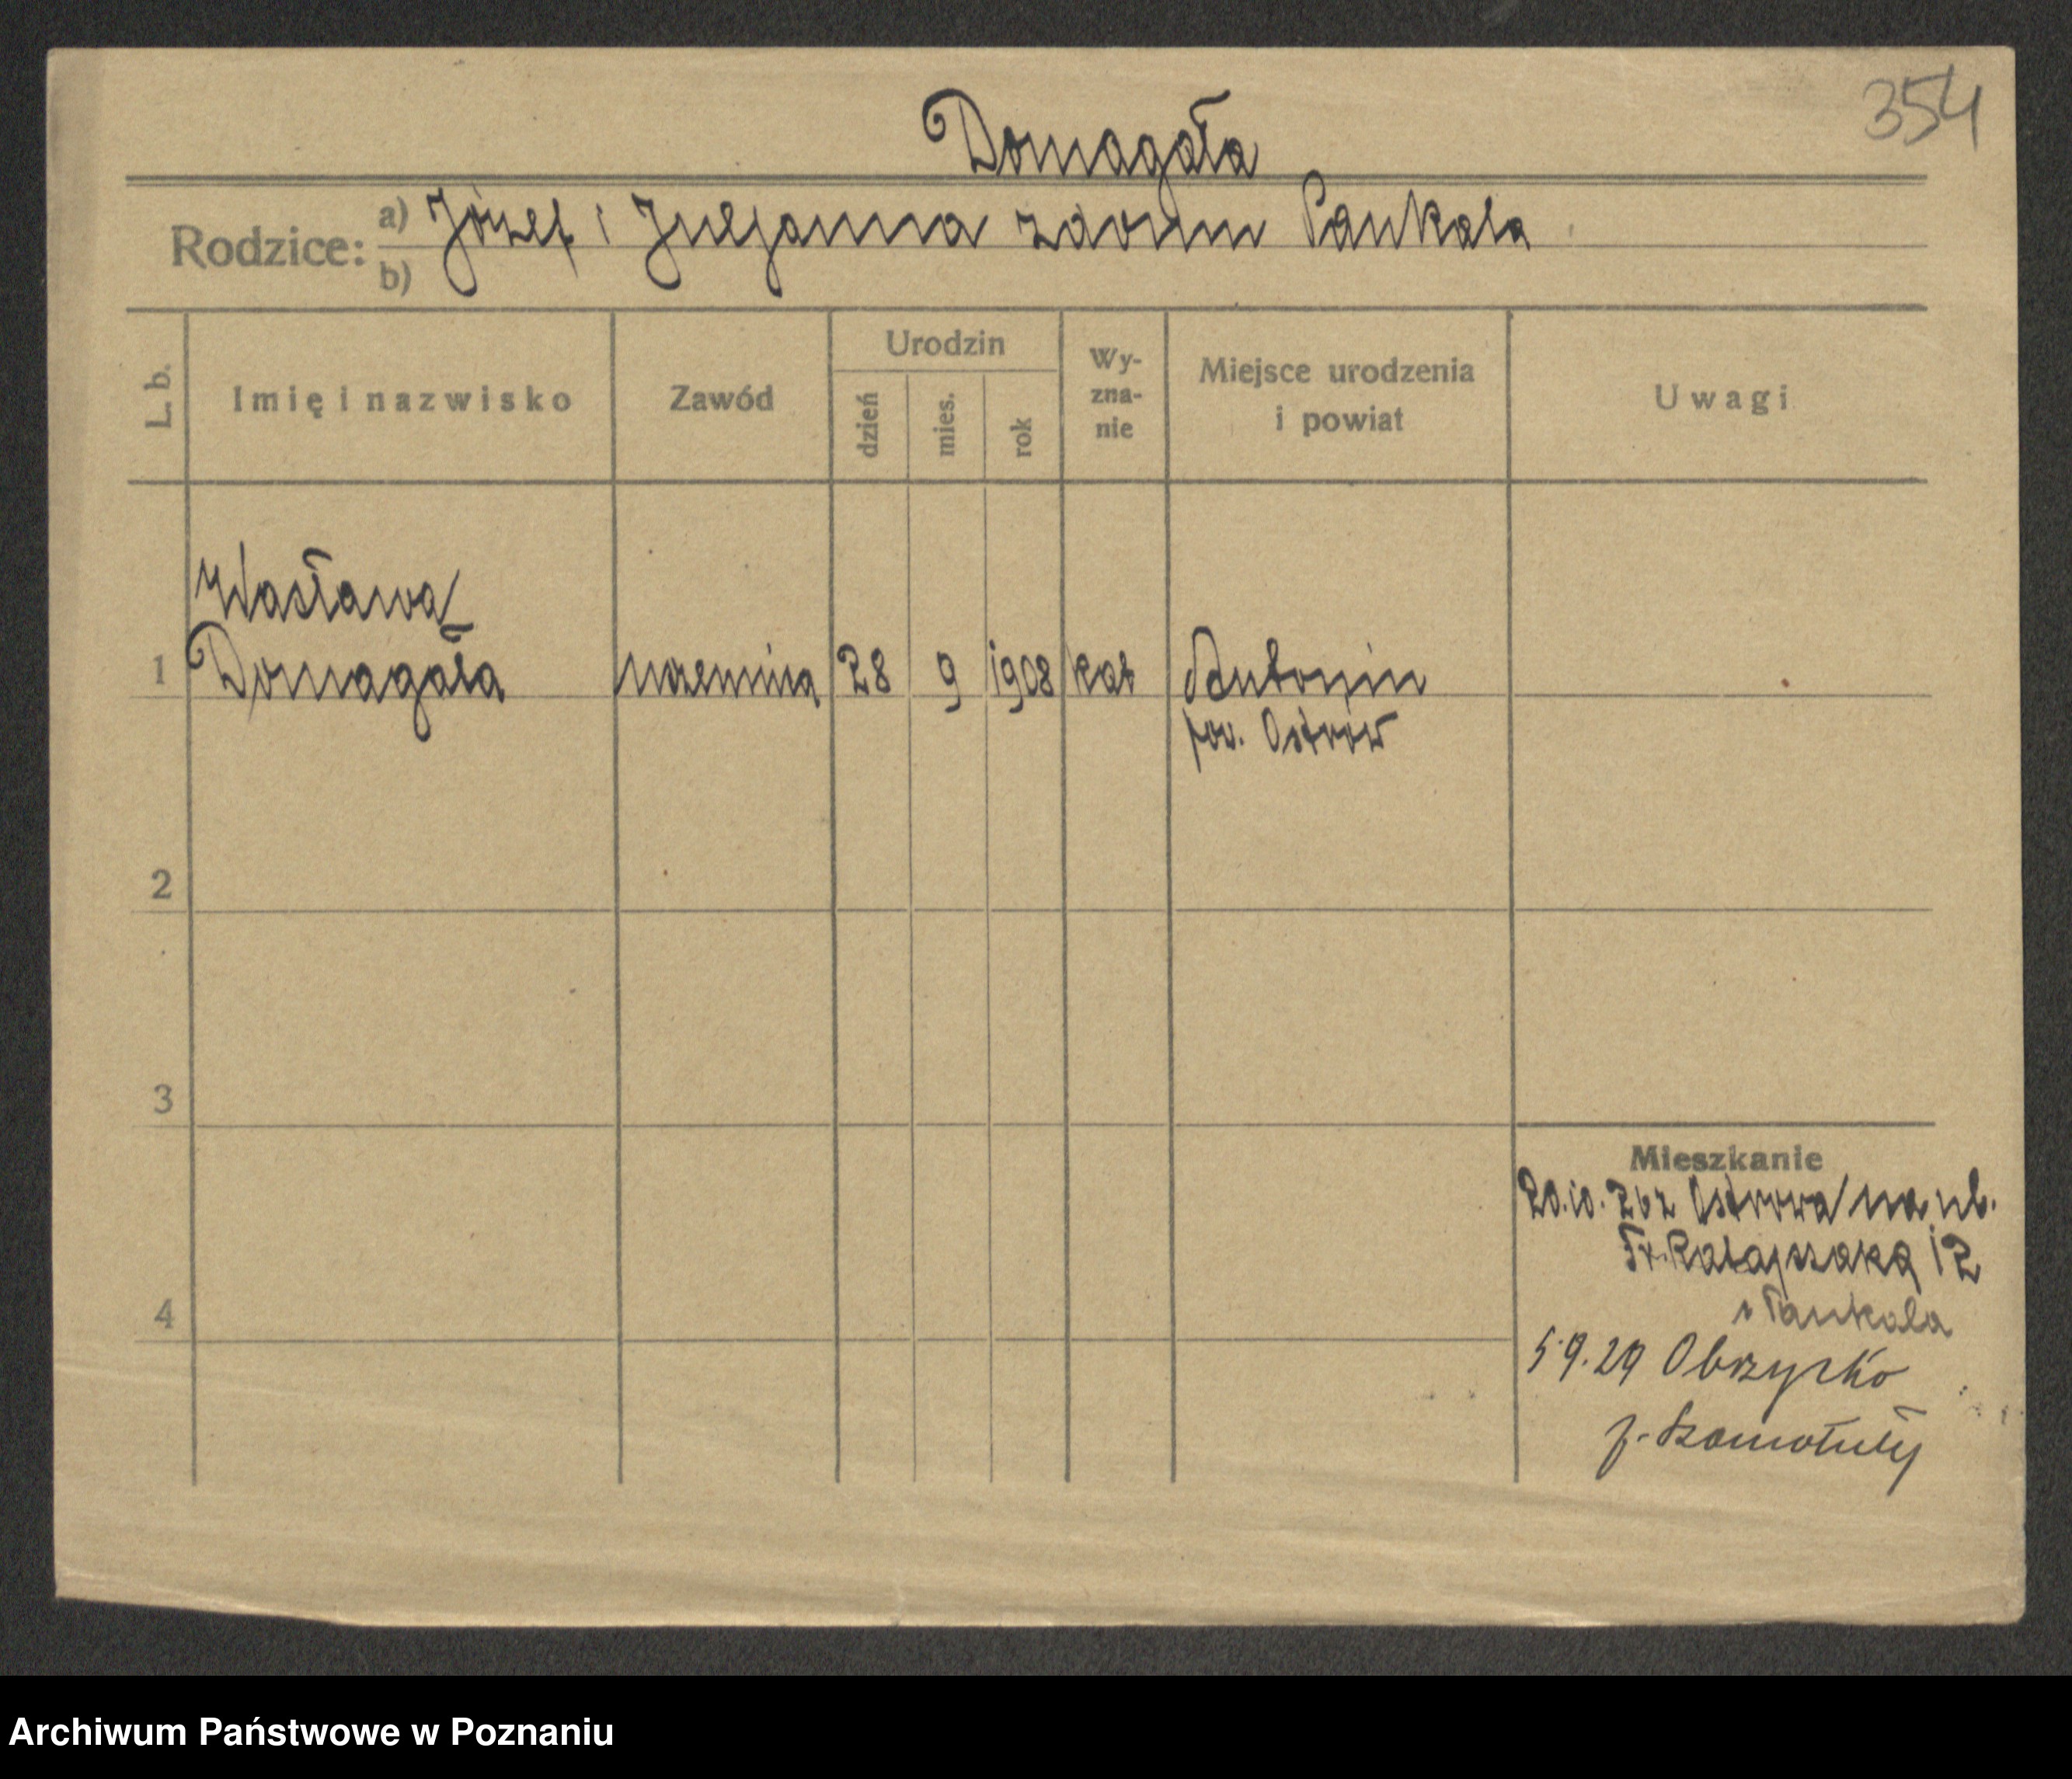 354
Domagała
Rodzice: a) Józef i Juljanna zdomu Pankala
b)
L. b. Imię i nazwisko Zawód Urodzin dzień mies. rok Wy-zna-nie Miejsce urodzenia i powiat Uwagi
Wasława
1 Domagała uczennica 28 9 1908 kat Antonin
pow. Ostrów
2
3
Mieszkanie
20.10.26 z Ostrowa na ul.
Fr. Ratajczaka 12
Pankala
4
5.9.29 Obrzycko
p. Szamotuły
Archiwum Państwowe w Poznaniu